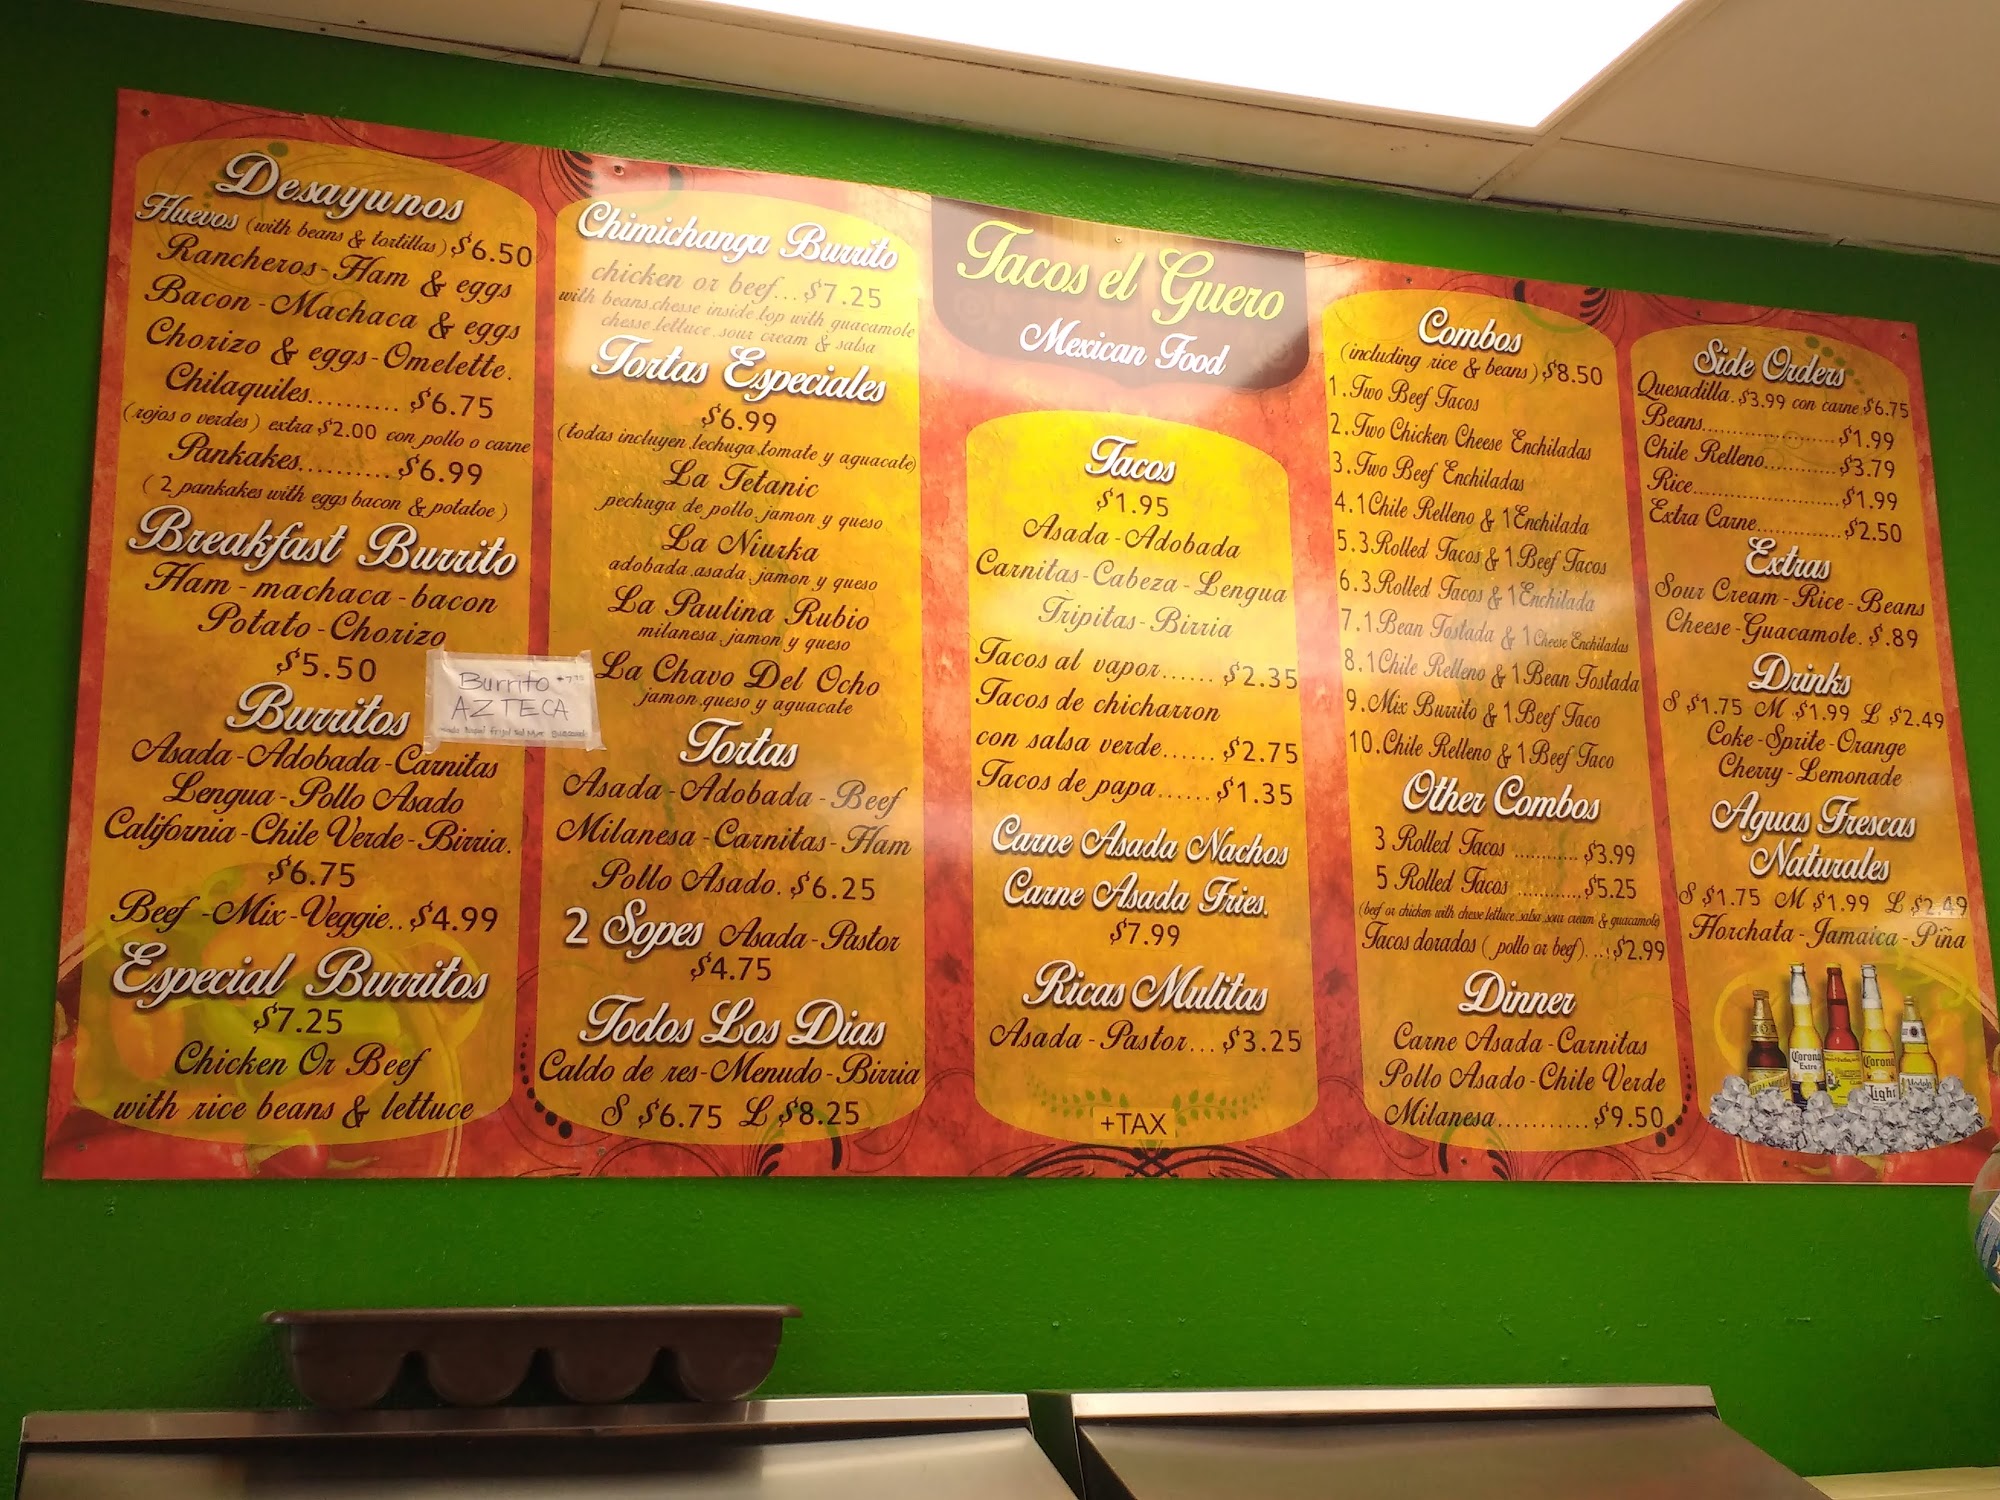 Desayunos
Huevos (with beans & tortillas) $6.50
Rancheros-Ham & eggs
Bacon-Machaca & eggs
Chorizo & eggs-Omelette.
Chilaquiles.......... $6.75
(rojos o verdes) extra $2.00 con pollo o carne
Pankakes..........$6.99
( 2 pankakes with eggs bacon & potatoe )
Breakfast Burrito
Ham - machaca - bacon
Potato - Chorizo
$5.50
Burritos
Asada-Adobada-Carnitas
Lengua-Pollo Asado
California-Chile Verde-Birria.
$6.75
Beef -Mix-Veggie..$4.99
Especial Burritos
$7.25
Chicken Or Beef
with rice beans & lettuce
Burrito
AZTECA
Chimichanga Burrito
chicken or beef...$7.25
with beans,chesse inside,top with guacamole
chesse,lettuce,sour cream & salsa
Tortas Especiales
$6.99
(todas incluyen,lechuga,tomate y aguacate)
La Tetanic
pechuga de pollo,jamon y queso
La Niurka
adobada,asada,jamon y queso
La Paulina Rubio
milanesa,jamon y queso
La Chavo Del Ocho
jamon,queso y aguacate
Tortas
Asada-Adobada-Beef
Milanesa-Carnitas-Ham
Pollo Asado. $6.25
2 Sopes Asada-Pastor
$4.75
Todos Los Dias
Caldo de res-Menudo-Birria
S $6.75 L $8.25
Tacos el Guero
Mexican Food
Tacos
$1.95
Asada-Adobada
Carnitas-Cabeza-Lengua
Tripitas-Birria
Tacos al vapor...... $2.35
Tacos de chicharron
con salsa verde...... $2.75
Tacos de papa......$1.35
Carne Asada Nachos
Carne Asada Fries.
$7.99
Ricas Mulitas
Asada-Pastor...$3.25
+TAX
Combos
(including rice & beans) $8.50
1.Two Beef Tacos
2.Two Chicken Cheese Enchiladas
3.Two Beef Enchiladas
4.1Chile Relleno & 1Enchilada
5.3.Rolled Tacos & 1Beef Tacos
6.3.Rolled Tacos & 1Enchilada
7.1Bean Tostada & 1Cheese Enchiladas
8.1Chile Relleno & 1Bean Tostada
9.Mix Burrito & 1Beef Taco
10.Chile Relleno & 1Beef Taco
Other Combos
3 Rolled Tacos ............ $3.99
5 Rolled Tacos ............$5.25
(beef or chicken with chesse,lettuce,salsa,sour cream & guacamole)
Tacos dorados ( pollo or beef). ..$2.99
Dinner
Carne Asada-Carnitas
Pollo Asado-Chile Verde
Milanesa............$9.50
Side Orders
Quesadilla. $3.99 con carne $6.75
Beans......................$1.99
Chile Relleno............$3.79
Rice........................$1.99
Extra Carne..............$2.50
Extras
Sour Cream-Rice-Beans
Cheese-Guacamole. $.89
Drinks
S $1.75 M $1.99 L $2.49
Coke-Sprite-Orange
Cherry-Lemonade
Aguas Frescas
Naturales
S $1.75 M $1.99 L $2.49
Horchata-Jamaica-Piña
Corona
Extra
Corona
Light
Modelo